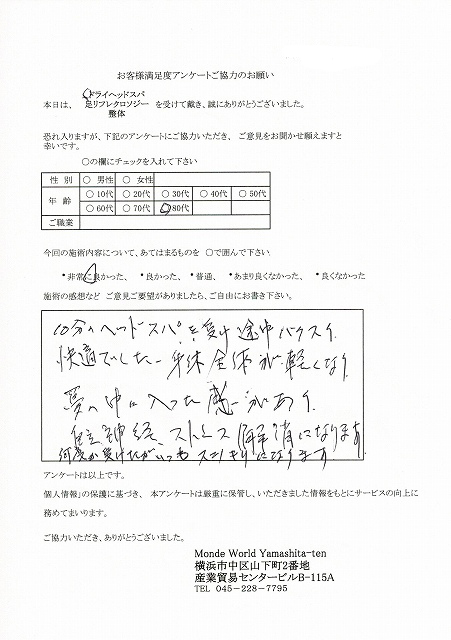 お客様満足度アンケートご協力のお願い
ドライヘッドスパ
本日は、 足リフレクロソジー を受けて戴き、誠にありがとうございました。
整体
恐れ入りますが、下記のアンケートにご協力いただき、ご意見をお聞かせ願えますと
幸いです。
○の欄にチェックを入れて下さい
性 別 ○ 男性 ○ 女性
年 齢 ○ 10代 ○ 20代 ○ 30代 ○ 40代 ○ 50代
○ 60代 ○ 70代 ○ 80代
ご職業
今回の施術内容について、あてはまるものを ○で囲んで下さい
*非常に良かった、 *良かった、 *普通、 *あまり良くなかった、 *良くなかった
施術の感想など ご意見ご要望がありましたら、ご自由にお書き下さい。
ヘッドスパを受け途中
快適でした 身体全体が軽くなり
夢の中に入った感じがあり
自立神経、ストレス解消になります
何度か受けたがいつもスッキリになります
アンケートは以上です。
個人情報」の保護に基づき、 本アンケートは厳重に保管し、いただきました情報をもとにサービスの向上に
務めてまいります。
ご協力いただき、ありがとうございました。
Monde World Yamashita-ten
横浜市中区山下町2番地
産業貿易センタービルB-115A
TEL 045-228-7795